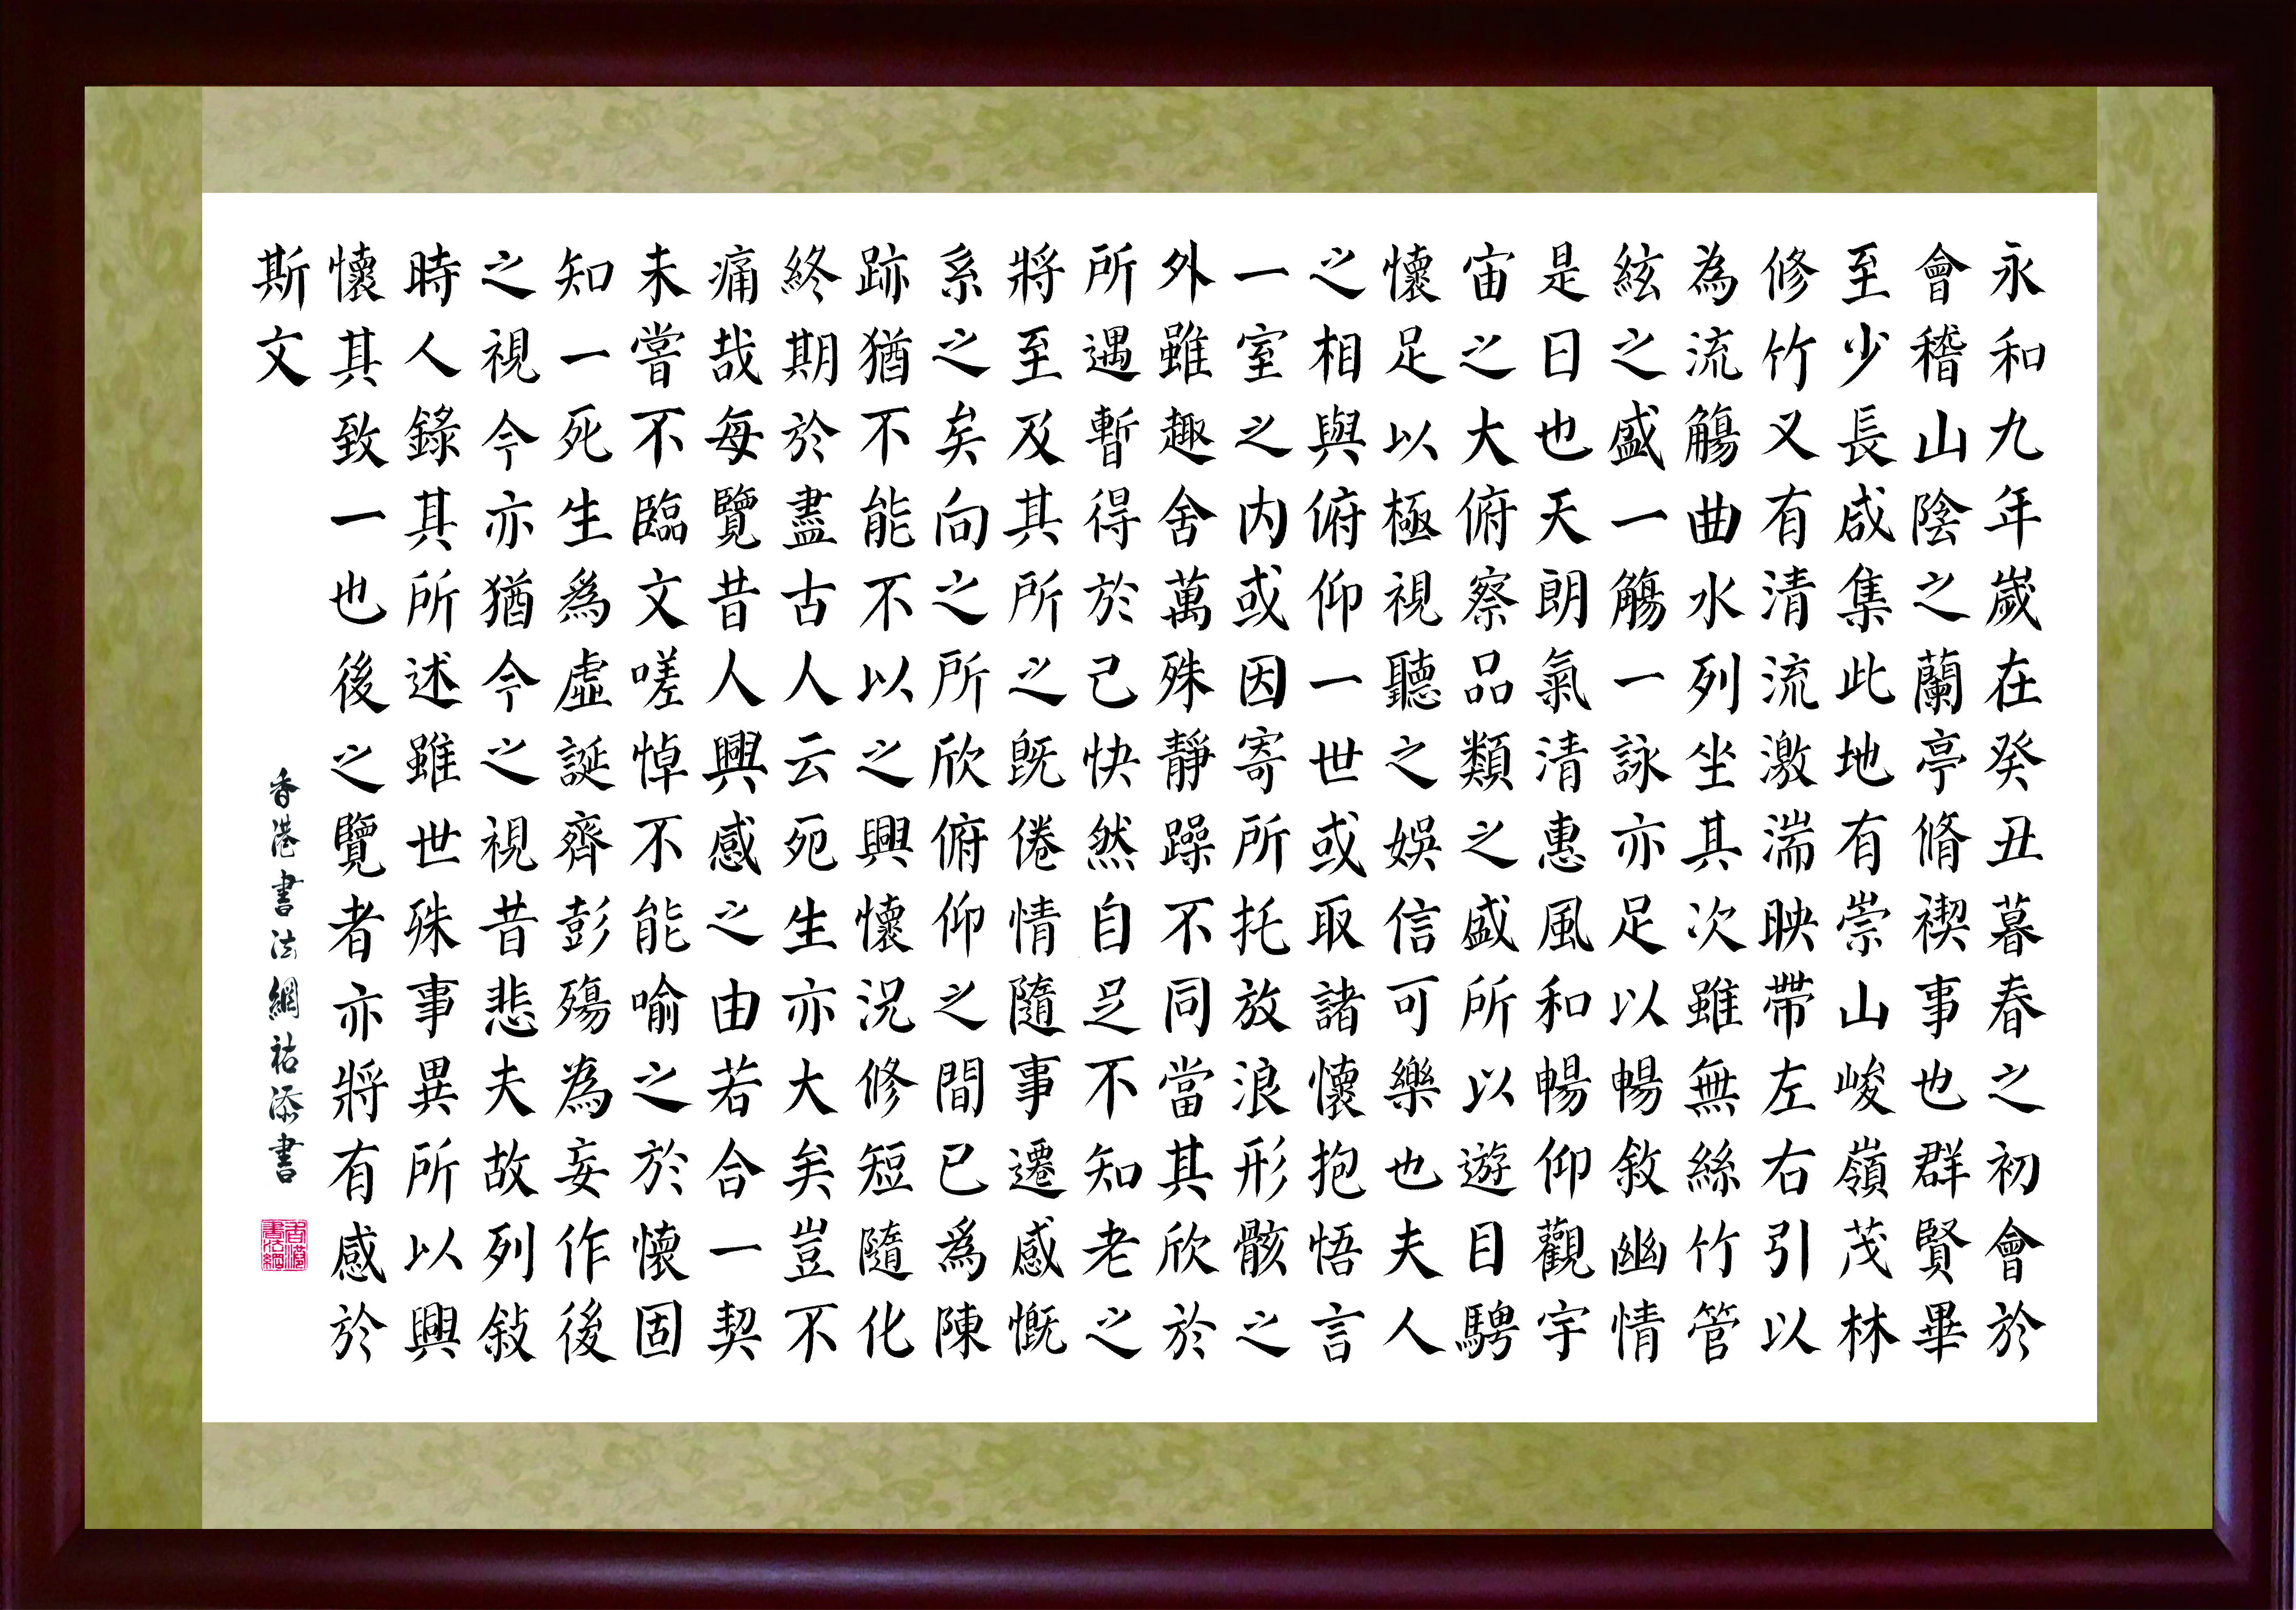 永和九年嵗在癸丑暮春之初會於
會稽山陰之蘭亭脩禊事也群賢畢
至少長咸集此地有崇山峻嶺茂林
修竹又有清流激湍映帶左右引以
為流觴曲水列坐其次雖無絲竹管
絃之盛一觴一詠亦足以暢敘幽情
是日也天朗氣清惠風和暢仰觀宇
宙之大俯察品類之盛所以遊目騁
懷足以極視聽之娛信可樂也夫人
之相與俯仰一世或取諸懷抱悟言
一室之内或因寄所托放浪形骸之
外雖趣舍萬殊靜躁不同當其欣於
所遇暫得於己快然自足不知老之
將至及其所之既倦情隨事遷感慨
系之矣向之所欣俯仰之間已爲陳
跡猶不能不以之興懷況修短隨化
終期於盡古人云死生亦大矣豈不
痛哉每覽昔人興感之由若合一契
未嘗不臨文嗟悼不能喻之於懷固
知一死生爲虛誕齊彭殤為妄作後
之視今亦猶今之視昔悲夫故列敍
時人錄其所述雖世殊事異所以興
懷其致一也後之覽者亦將有感於
斯文
香港書法網祐添書
香港書法網